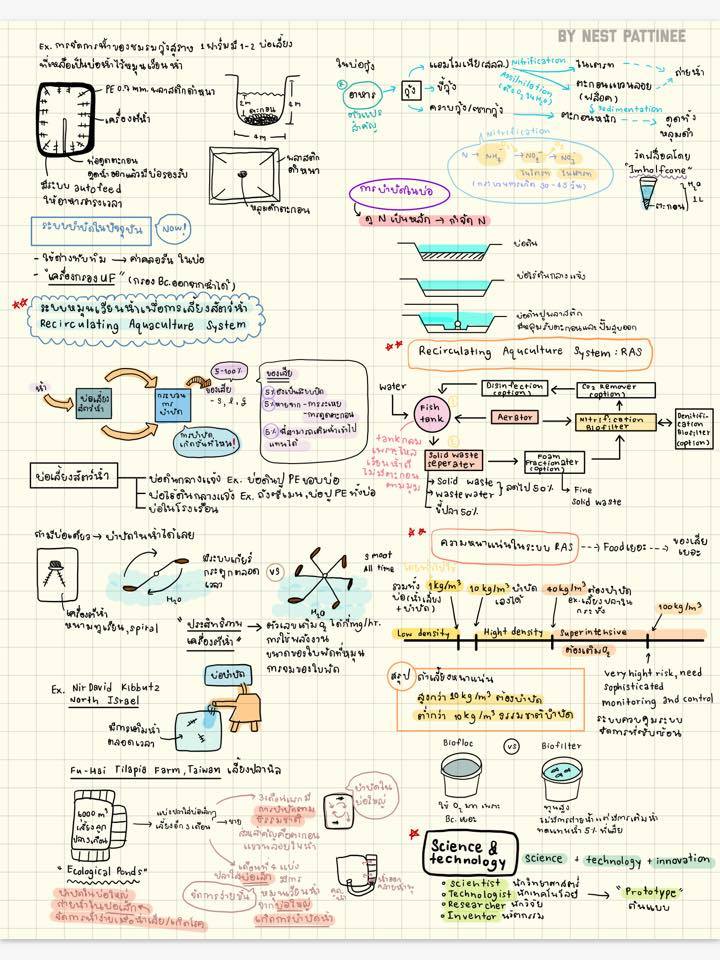 BY NEST PATTINEE
Ex. การจัดการน้ำของชมรมกุ้งสุราษ 1 ฟาร์มมี 1-2 บ่อเลี้ยง
ที่เหลือเป็นบ่อน้ำไว้หมุนเวียนน้ำ
PE 0.7 mm. พลาสติกดำหนา
เครื่องตีน้ำ
ท่อดูดตะกอน
ดูดน้ำออกแล้วมีบ่อรองรับ
มีระบบ autofeed
ให้อาหารตรงเวลา
2m
ตะกอน
4m
พลาสติก
ดำหนา
หลุมดักตะกอน
ระบบบำบัดในปัจจุบัน
NOW!
- ใช้ด่างทับทิม → ฆ่าคลอรีน ในบ่อ
- "เครื่องกรอง UF" (กรอง Bc. ออกจากน้ำได้)
ระบบหมุนเวียนน้ำเพื่อการเลี้ยงสัตว์น้ำ
Recirculating Aquaculture System
ในบ่อกุ้ง
อาหาร
ตัวแปร
สำคัญ
กุ้ง
แอมโมเนีย (สลล.)
ขี้กุ้ง
คราบกุ้ง/ซากกุ้ง
Nitrification
ไนเตรท
ตะกอนแขวนลอย
(ฟล็อค)
Sedimentation
ตะกอนหนัก
ถ่ายน้ำ
ดูดทิ้ง
หลุมดำ
Nitrification
N → NH₃ → NO₂⁻ → NO₃⁻
ไนไตรท์ ไนเตรท
การบำบัดในบ่อ
ดู N เป็นหลัก → กำจัด N
วัดฟล็อคโดย
"Imhoffcone"
H₂O
1L
ตะกอน
บ่อดิน
บ่อใช้ดินกลางแจ้ง
บ่อดินปูพลาสติก
มีหลุมรับตะกอนและปั๊มสูบออก
น้ำ
บ่อเลี้ยง
สัตว์น้ำ
กระบวน
การ
บำบัด
5-100%
ของเสีย
- s, l, g
การบำบัด
เกิดขึ้นที่ไหน!
ของเสีย
5% ยังเป็นระบบปิด
5% หายจาก - การระเหย
- การดูดตะกอน
5% ที่สามารถเติมน้ำเข้าไป
แทนได้
Recirculating Aquculture System : RAS
water
Fish
tank
Disinfection
(option)
CO₂ Remover
(option)
Aerator
Nitrification
Biofilter
Denitification
Biofilter
(option)
Solid waste
seperater
Foam
Fractionater
(option)
Fine
solid waste
tank กลม
เพราะไหล
เวียนน้ำดี
ไม่มีตะกอน
ตามมุม
Solid waste
wastewater
ลดไป 50%
ขี้ปลา 50%
บ่อเลี้ยงสัตว์น้ำ
บ่อดินกลางแจ้ง Ex. บ่อดินปู PE ขอบบ่อ
บ่อใช้ดินกลางแจ้ง Ex. ถังซีเมนต์, บ่อปู PE ทั้งบ่อ
บ่อในโรงเรือน
ถ้ามีบ่อเดียว → บำบัดในน้ำได้เลย
เครื่องตีน้ำ
หนามทุเรียน, spiral
H₂O
มีระบบเกียร์
กระตุกตลอด
เวลา
VS
H₂O
All time
"ประสิทธิภาพ
เครื่องตีน้ำ"
ตัวเลขเติม O₂ ได้กี่ mg/hr.
การใช้พลังงาน
ขนาดของใบพัดที่หมุน
การจมของใบพัด
Ex. Nir David Kibbutz
North Israel
บ่อบำบัด
มีการเติมน้ำ
ตลอดเวลา
ความหนาแน่นในระบบ RAS ---> Food เยอะ ---> ของเสีย
เยอะ
รวมทั้ง
บ่อ (น้ำเลี้ยง
+ บำบัด)
1kg/m³
10 kg/m³ บำบัด
เองได้
40kg/m³ ต้องบำบัด
ex. เลี้ยงปลาใน
กระชัง
100kg/m³
Low density
Hight density
Superintensive
ต้องเติม O₂
สรุป
ถ้าเลี้ยงหนาแน่น
สูงกว่า 10kg/m³ ต้องบำบัด
ต่ำกว่า 10 kg/m³ ธรรมชาติบำบัด
very hight risk, need
sophisticated
monitoring and control
ระบบควบคุมระบบ
จัดการที่ซับซ้อน
Biofloc
VS
Biofilter
ใช้ O₂ มาก เพราะ
Bc. เยอะ
ทุนสูง
ไม่มีการถ่ายน้ำแต่มีการเติมน้ำ
ทดแทนน้ำ 5% ที่เสีย
Fu-Hai Tilapia Farm, Taiwan เลี้ยงปลานิล
6000 m³
เลี้ยงลูก
ปลา 3 เดือน
แบ่งปลาใส่บ่อเล็กๆ
เลี้ยงอีก 3 เดือน
ขาย
"Ecological Ponds"
3 เดือนแรกมี
การบำบัดตาม
ธรรมชาติ
ส่วนสำคัญคือตะกอน
แขวนลอยในน้ำ
เดือนที่ 4 แบ่ง
ปลาใส่บ่อเล็ก
บำบัดใน
บ่อใหญ่
บำบัดในบ่อใหญ่
ถ่ายน้ำในบ่อเล็กๆ
จัดการง่ายเมื่อน้ำเสีย/เกิดโรค
จัดการง่ายขึ้น
หมุนเวียนน้ำ
จากบ่อใหญ่
เกิดการบำบัดน้ำ
Science &
technology
science + technology + innovation
Scientist นักวิทยาศาสตร์
Technologist นักเทคโนโลยี
Researcher นักวิจัย
Inventor นวัตกรรม
"Prototype"
ต้นแบบ